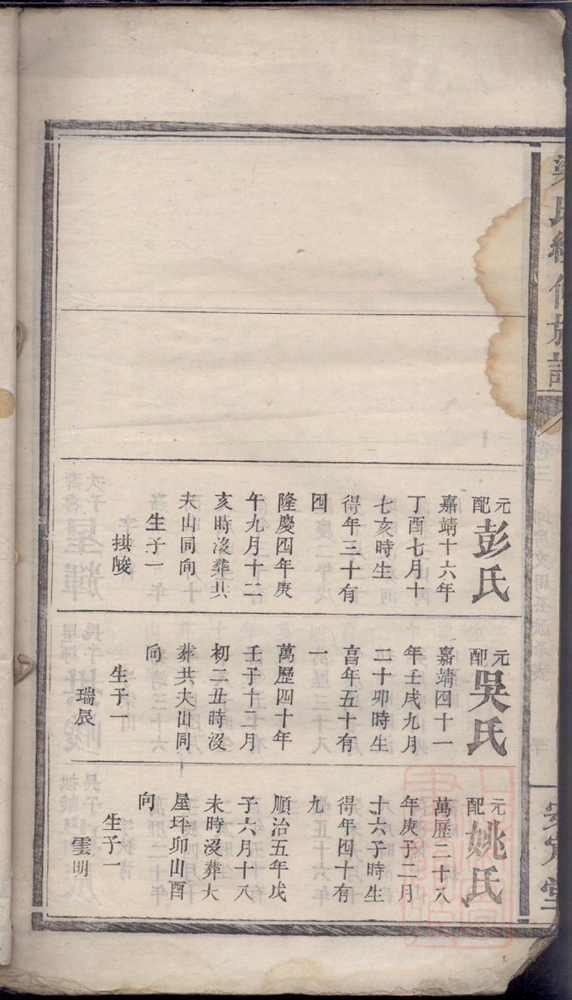 梁氏續修族譜
安定堂
元配彭氏
嘉靖十六年
丁酉七月十
七亥時生
得年三十有
四
隆慶四年庚
午九月十二
亥時沒葬共
夫山同向
生子一
拱峻
元配吳氏
嘉靖四十一
年壬戌九月
二十卯時生
享年五十有
一
萬歷四十年
壬子十二月
初二丑時沒
葬共夫山同
向
生子一
瑞辰
元配姚氏
萬歷二十八
年庚子二月
十六子時生
得年四十有
九
順治五年戊
子六月十八
未時沒葬大
屋坪卯山酉
向
生子一
雲明